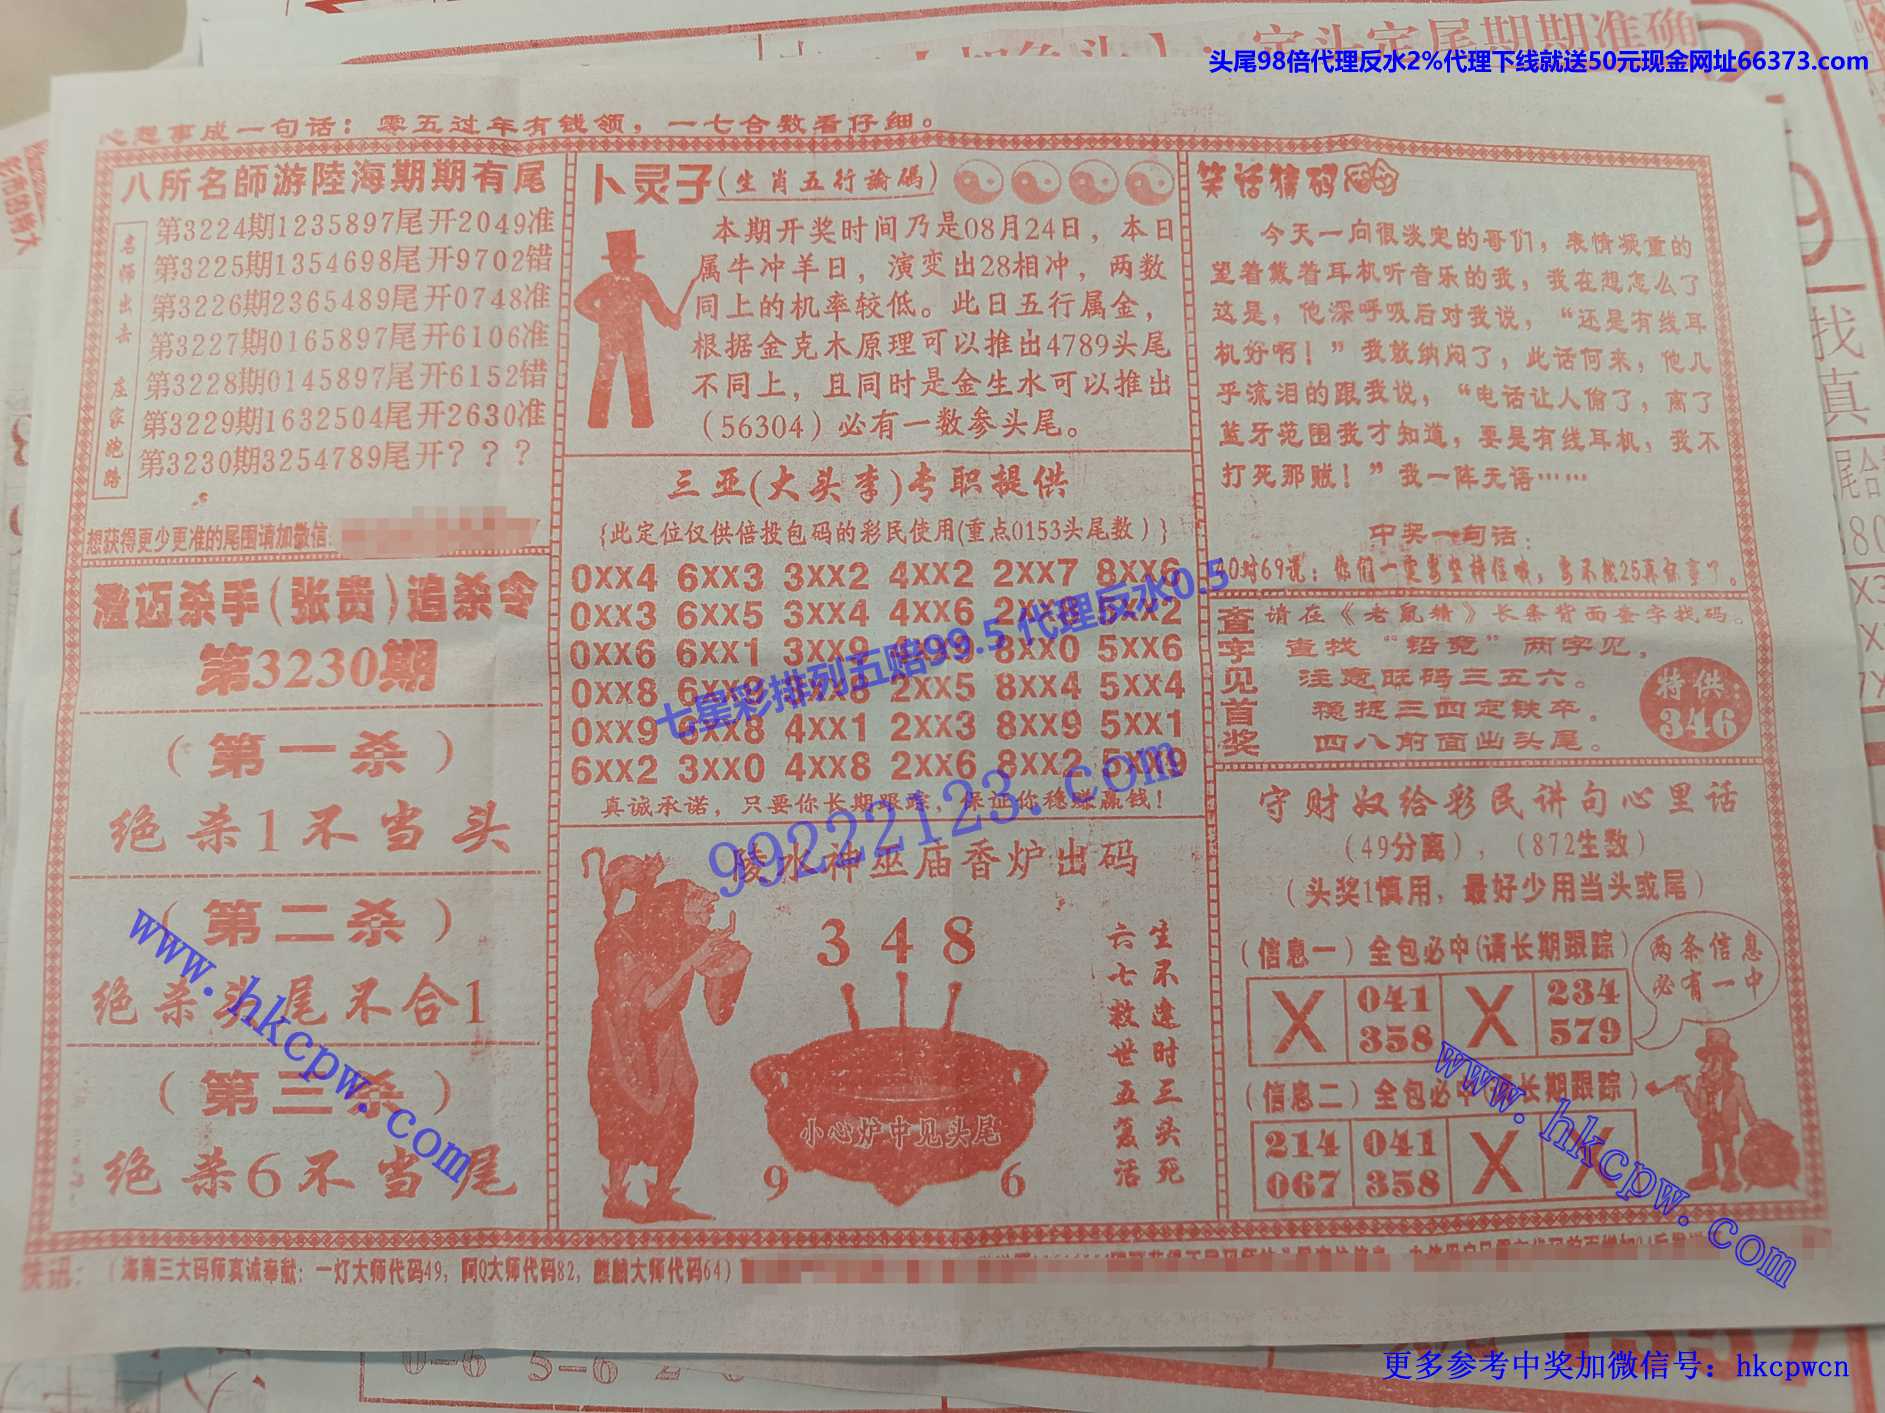 头尾98倍代理反水2%代理下线就送50元现金网址66373.com
心想事成一句话：零五过年有钱领，一七合数看仔细。
八所名師游陸海期期有尾
名师出击 庄家跑路
第3224期1235897尾开2049准
第3225期1354698尾开9702错
第3226期2365489尾开0748准
第3227期0165897尾开6106准
第3228期0145897尾开6152错
第3229期1632504尾开2630准
第3230期3254789尾开？？？
想获得更少更准的尾围请加微信:
澄迈杀手(张贵)追杀令
第3230期
（第一杀）
绝杀1不当头
（第二杀）
绝杀头尾不合1
（第三杀）
绝杀6不当尾
卜灵子(生肖五行論碼)
本期开奖时间乃是08月24日，本日
属牛冲羊日，演变出28相冲，两数
同上的机率较低。此日五行属金，
根据金克木原理可以推出4789头尾
不同上，且同时是金生水可以推出
（56304）必有一数参头尾。
三亚(大头李)专职提供
{此定位仅供倍投包码的彩民使用(重点0153头尾数）}
0XX4 6XX3 3XX2 4XX2 2XX7 8XX6
0XX3 6XX5 3XX4 4XX6 5XX2
0XX6 6XX1 8XX0 5XX6
0XX8 2XX5 8XX4 5XX4
0XX9 6XX8 4XX1 2XX3 8XX9 5XX1
6XX2 3XX0 4XX8 2XX6 8XX2 5XX9
真诚承诺，只要你长期跟踪，保证你稳赚赢钱！
七星彩排列五赔99.5 代理反水0.5
99222123.com
陵水神巫庙香炉出码
3 4 8
生不逢时三头死
六七救世五复活
小心炉中见头尾
9
6
笑话猜码
今天一向很淡定的哥们，表情凝重的
望着戴着耳机听音乐的我，我在想怎么了
这是，他深呼吸后对我说，“还是有线耳
机好啊！”我就纳闷了，此话何来，他几
乎流泪的跟我说，“电话让人偷了，离了
蓝牙范围我才知道，要是有线耳机，我不
打死那贼！”我一阵无语……
中奖一句话：
查字见首奖
请在《老鼠精》长条背面查字找码。
查找“铅竞”两字见，
注意旺码三五六。
稳捉三四定铁卒。
四八前面出头尾。
特供：
346
守财奴给彩民讲句心里话
（49分离），（872生数）
（头奖1慎用，最好少用当头或尾）
（信息一）全包必中(请长期跟踪）
X 041 358 X 234 579
两条信息
必有一中
（信息二）全包必中(请长期跟踪）
214 067 041 358 X X
www.hkcpw.com
www.hkcpw.com
快讯：（海南三大码师真诚奉献：一灯大师代码49，阿Q大师代码82，麒麟大师代码64）
0-6 5-6
更多参考中奖加微信号：hkcpwcn